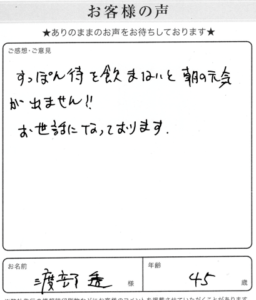 お客様の声
★ありのままのお声をお待ちしております★
ご感想・ご意見
すっぽん侍を飲まないと朝の元気
が出ません!!
お世話になっております.
お名前
渡部
様
年齢
45
歳